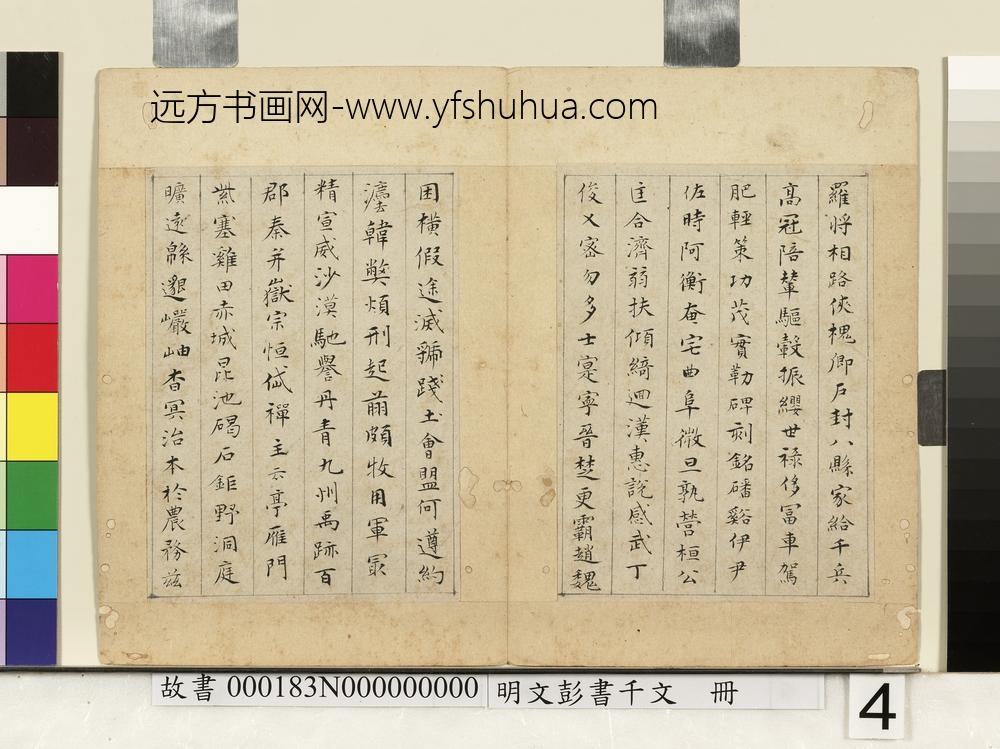 远方书画网-www.yfshuhua.com
羅將相路俠槐卿戶封八縣家給千兵
高冠陪輦驅轂振纓世祿侈富車駕
肥輕策功茂實勒碑刻銘磻谿伊尹
佐時阿衡奄宅曲阜微旦孰營桓公
匡合濟弱扶傾綺迴漢惠說感武丁
俊乂密勿多士寔寧晉楚更霸趙魏
困橫假途滅虢踐土會盟何遵約
灋韓弊煩刑起翦頗牧用軍最
精宣威沙漠馳譽丹青九州禹跡百
郡秦并嶽宗恒岱禪主云亭雁門
紫塞雞田赤城昆池碣石鉅野洞庭
曠遠緜邈巖岫杳冥治本於農務茲
故書 000183N000000000 明文彭書千文 冊
4